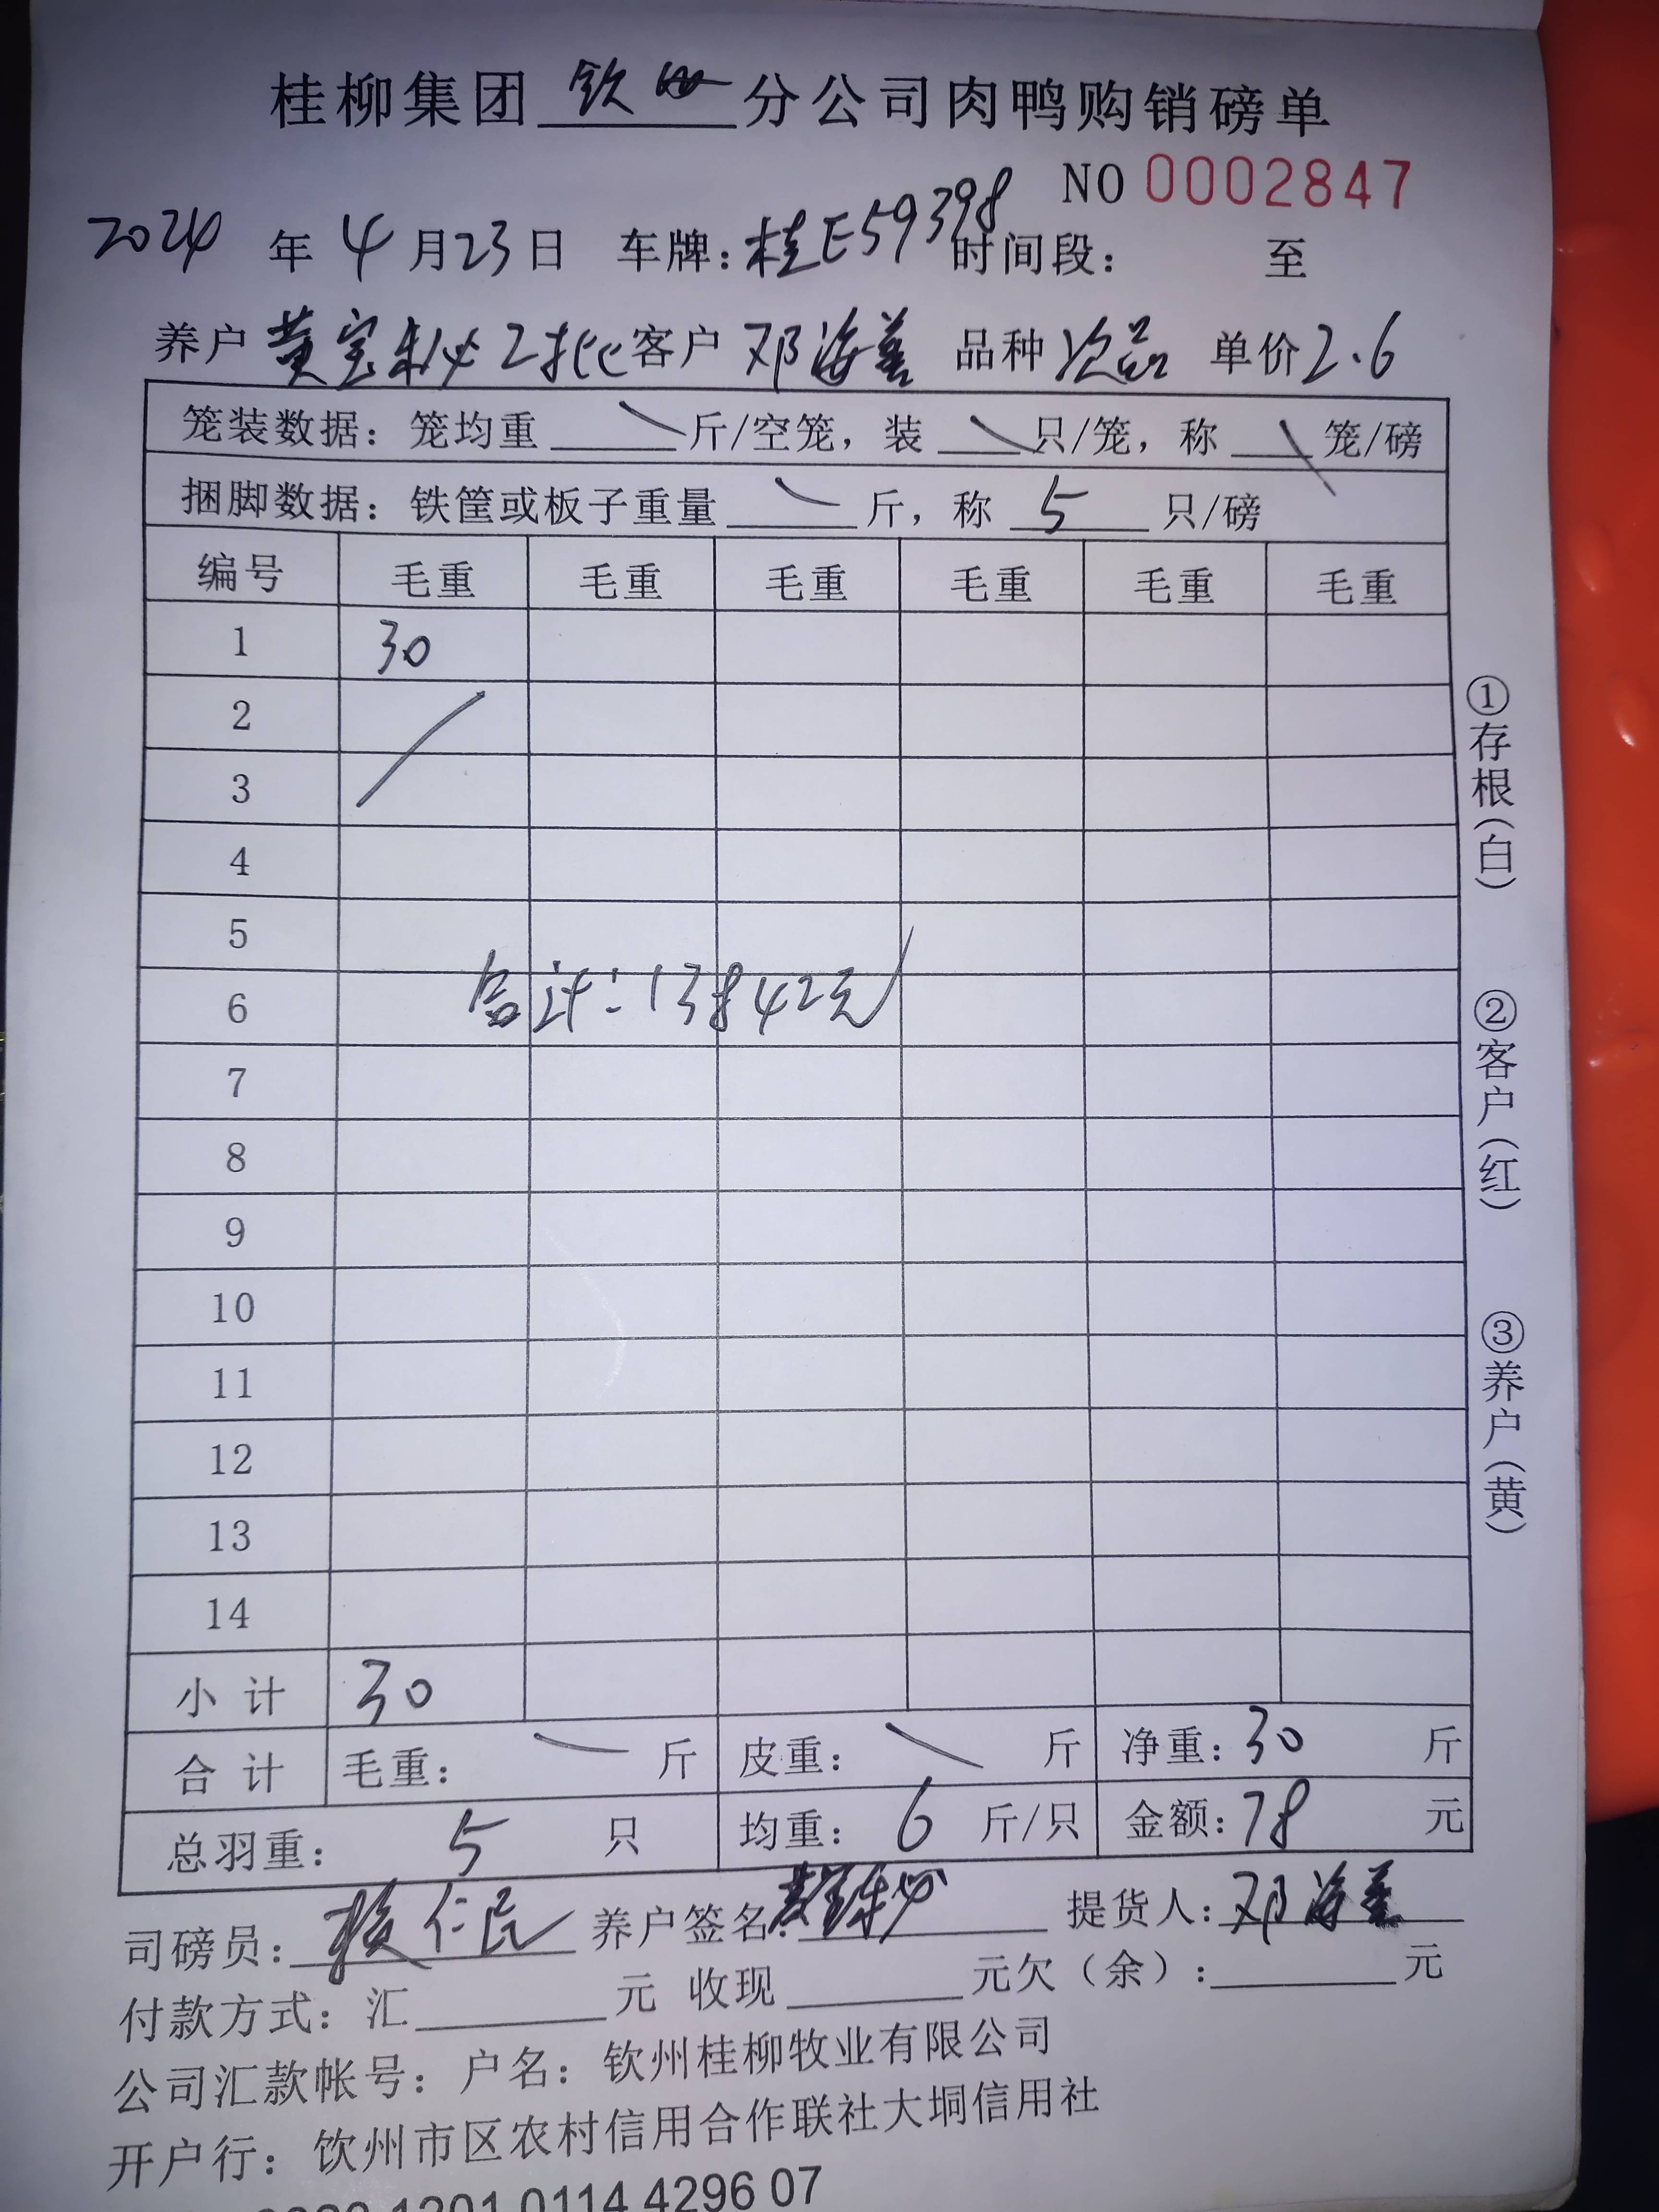 桂柳集团 钦州 分公司肉鸭购销磅单
NO 0002847
2024 年 4 月 23 日 车牌：桂E59398 时间段： 至
养户 黄宝 2批 客户 邓海善 品种 次品 单价 2.6
笼装数据：笼均重 斤/空笼，装 只/笼，称 笼/磅
捆脚数据：铁筐或板子重量 斤，称 5 只/磅
编号 毛重 毛重 毛重 毛重 毛重 毛重
1 30
2
3
4
5
6
合计：13842元
7
8
9
10
11
12
13
14
小计 30
合计 毛重： 斤 皮重： 斤 净重：30 斤
总羽重： 5 只 均重： 6 斤/只 金额：78 元
司磅员： 仁民 养户签名： 提货人：邓海善
付款方式：汇 元 收现 元欠（余）： 元
公司汇款帐号：户名：钦州桂柳牧业有限公司
开户行：钦州市区农村信用合作联社大垌信用社
1201 0114 4296 07
①存根（白）
②客户（红）
③养户（黄）